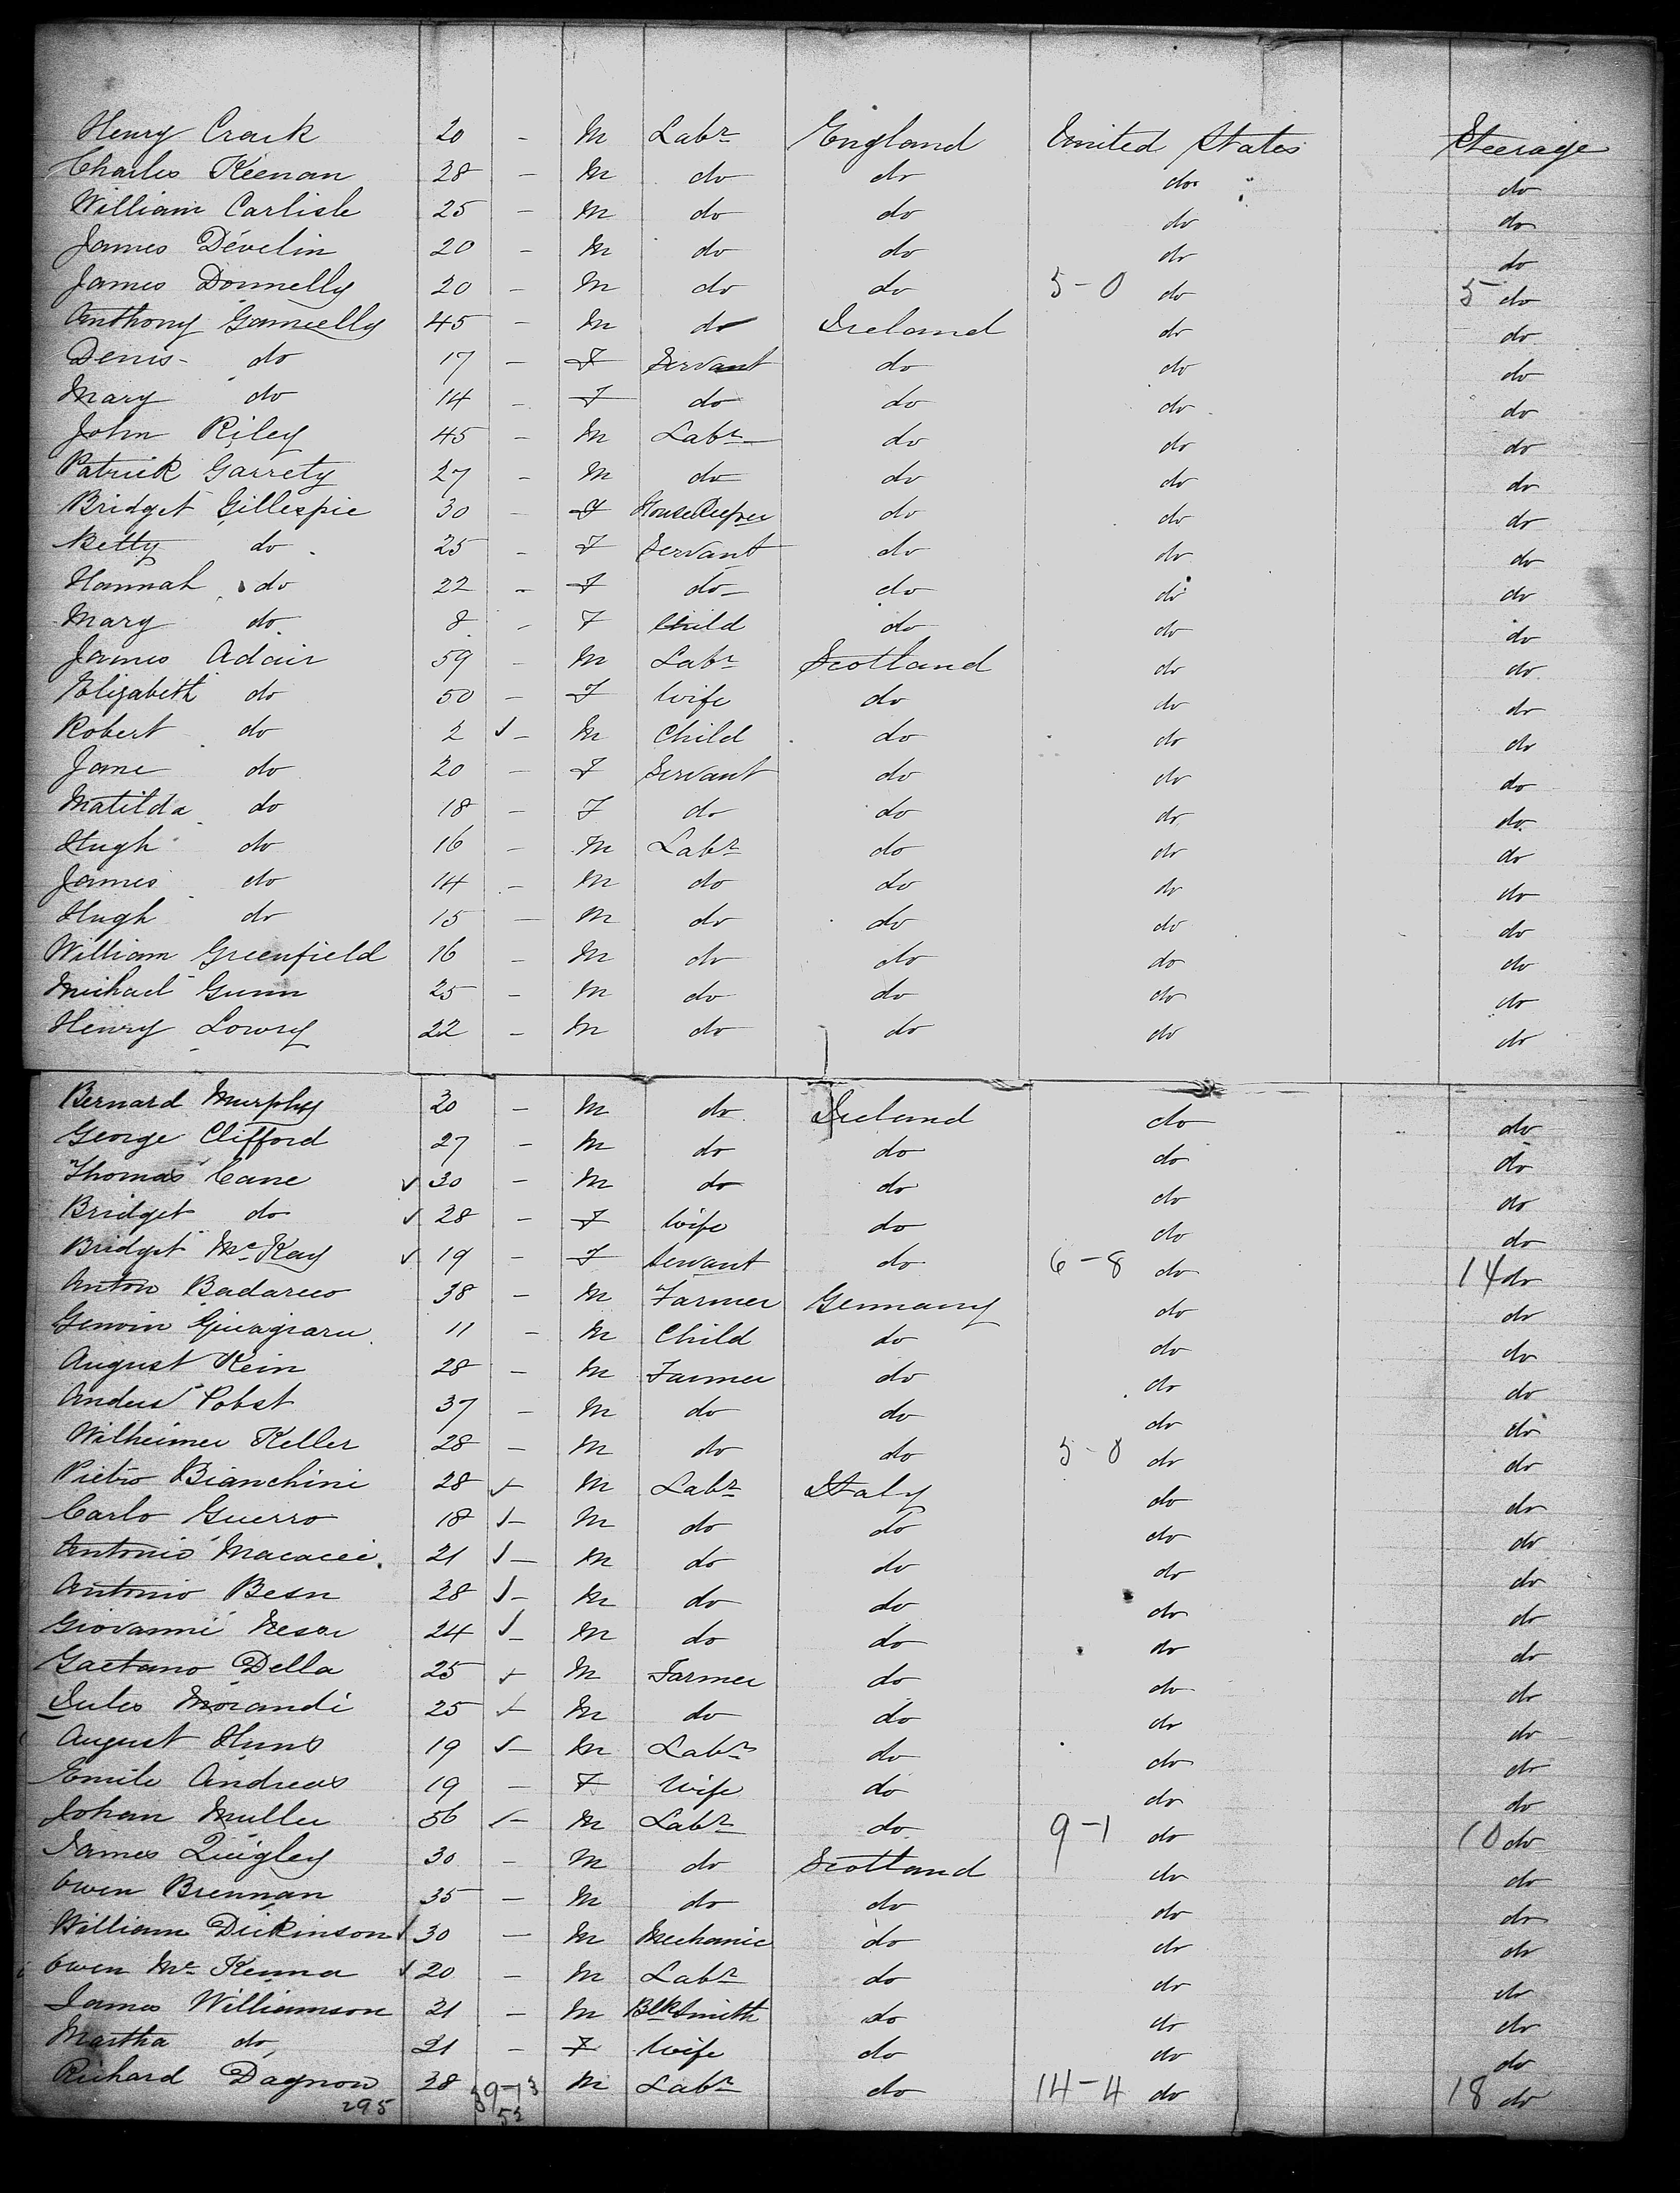 Henry Crack 20 - M Labr England United States Steerage
Charles Keenan 28 - M do do do do
William Carlisle 25 - M do do do do
James Develin 20 - M do do do do
James Donnelly 20 - M do do 5-0 do 5 do
Anthony 45 - M do Ireland do do
Denis do 17 - F Servant do do do
Mary do 14 - F do do do do
John Riley 45 - M Labr do do do
Patrick Garrety 27 - M do do do do
Bridget Gillespie 30 - F HouseKeeper do do do
Betty do 25 - F Servant do do do
Hannah do 22 - F do do do do
Mary do 8 - F Child do do do
James Adair 59 - M Labr Scotland do do
Elizabeth do 50 - F Wife do do do
Robert do 2 - M Child do do do
Jane do 20 - F Servant do do do
Matilda do 18 - F do do do do
Hugh do 16 - M Labr do do do
James do 14 - M do do do do
Hugh do 15 - M do do do do
William Greenfield 16 - M do do do do
Michael Gunn 25 - M do do do do
Henry Lowry 22 - M do do do do
Bernard Murphy 30 - M do Ireland do do
George Clifford 27 - M do do do do
Thomas Cane 30 - M do do do do
Bridget do 28 - F Wife do do do
Bridget McKay 19 - F Servant do 6-8 do 14 do
Anton 38 - M Farmer Germany do do
11 - M Child do do do
August Kein 28 - M Farmer do do do
Pobst 37 - M do do do do
Wilheimer Keller 28 - M do do 5-0 do do
Pietro Bianchini 28 - M Labr Italy do do
Carlo Guerro 18 - M do do do do
Antonio 21 - M do do do do
Antonio Besn 28 - M do do do do
Giovanni 24 - M do do do do
Gaetano Della 25 - M Farmer do do do
Jules Morandi 25 - M do do do do
August Huns 19 - M Labr do do do
Emile Andreas 19 - F Wife do do do
Johan Muller 56 - M Labr do 9-1 do 10 do
James Quigley 30 - M do Scotland do do
Owen Brennan 35 - M do do do do
William Dickinson 30 - M Mechanic do do do
Owen McKenna 20 - M Labr do do do
James Williamson 21 - M BlkSmith do do do
Martha do 21 - F Wife do do do
Richard Dagnon 28 39-13 M Labr do 14-4 do 18 do
295 52